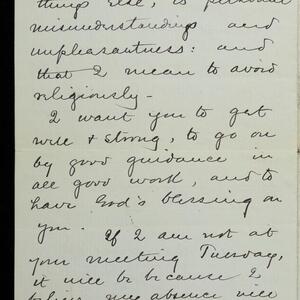 things else, to personal
misunderstandings and
unpleasantness: and
that I mean to avoid
religiously—
I want you to get
well & strong, to go on
by good guidance in
all good work, and to
have God's blessing on
you. If I am not at
your meeting Tuesday,
it will be because I
believe my absence will